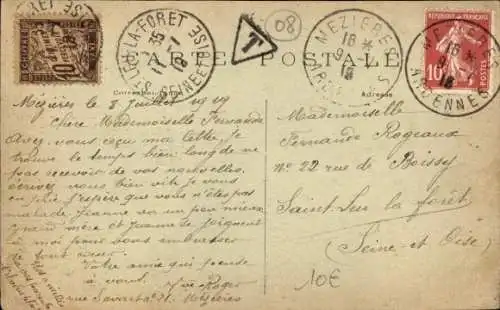 ST-LEU-LA-FORET
SEINE-ET-OISE
10 CENTIMES
A PERCEVOIR
T
08
MEZIERES
ARDENNES
18
9
RÉPUBLIQUE FRANÇAISE
POSTES
10
CARTE POSTALE
Correspondance
Adresse
Mézières le 8 juillet 1919
Chère Mademoiselle Fernande
Avez vous reçu ma lettre, je
trouve le temps bien long de ne
pas recevoir de vos nouvelles.
écrivez vous bien vite je vous
en prie j'espère que vous n'êtes pas
malade. Jeanne va un peu mieux
Grand mère et Jeanne se joignent
à moi pour vous embrasser
bien fort.
Votre amie qui pense
à vous.
Roger
rue Savart Mézières
Mademoiselle
Fernande Rogeaux
N° 22 rue de Boissy
Saint-Leu la forêt
(Seine et Oise)
10€